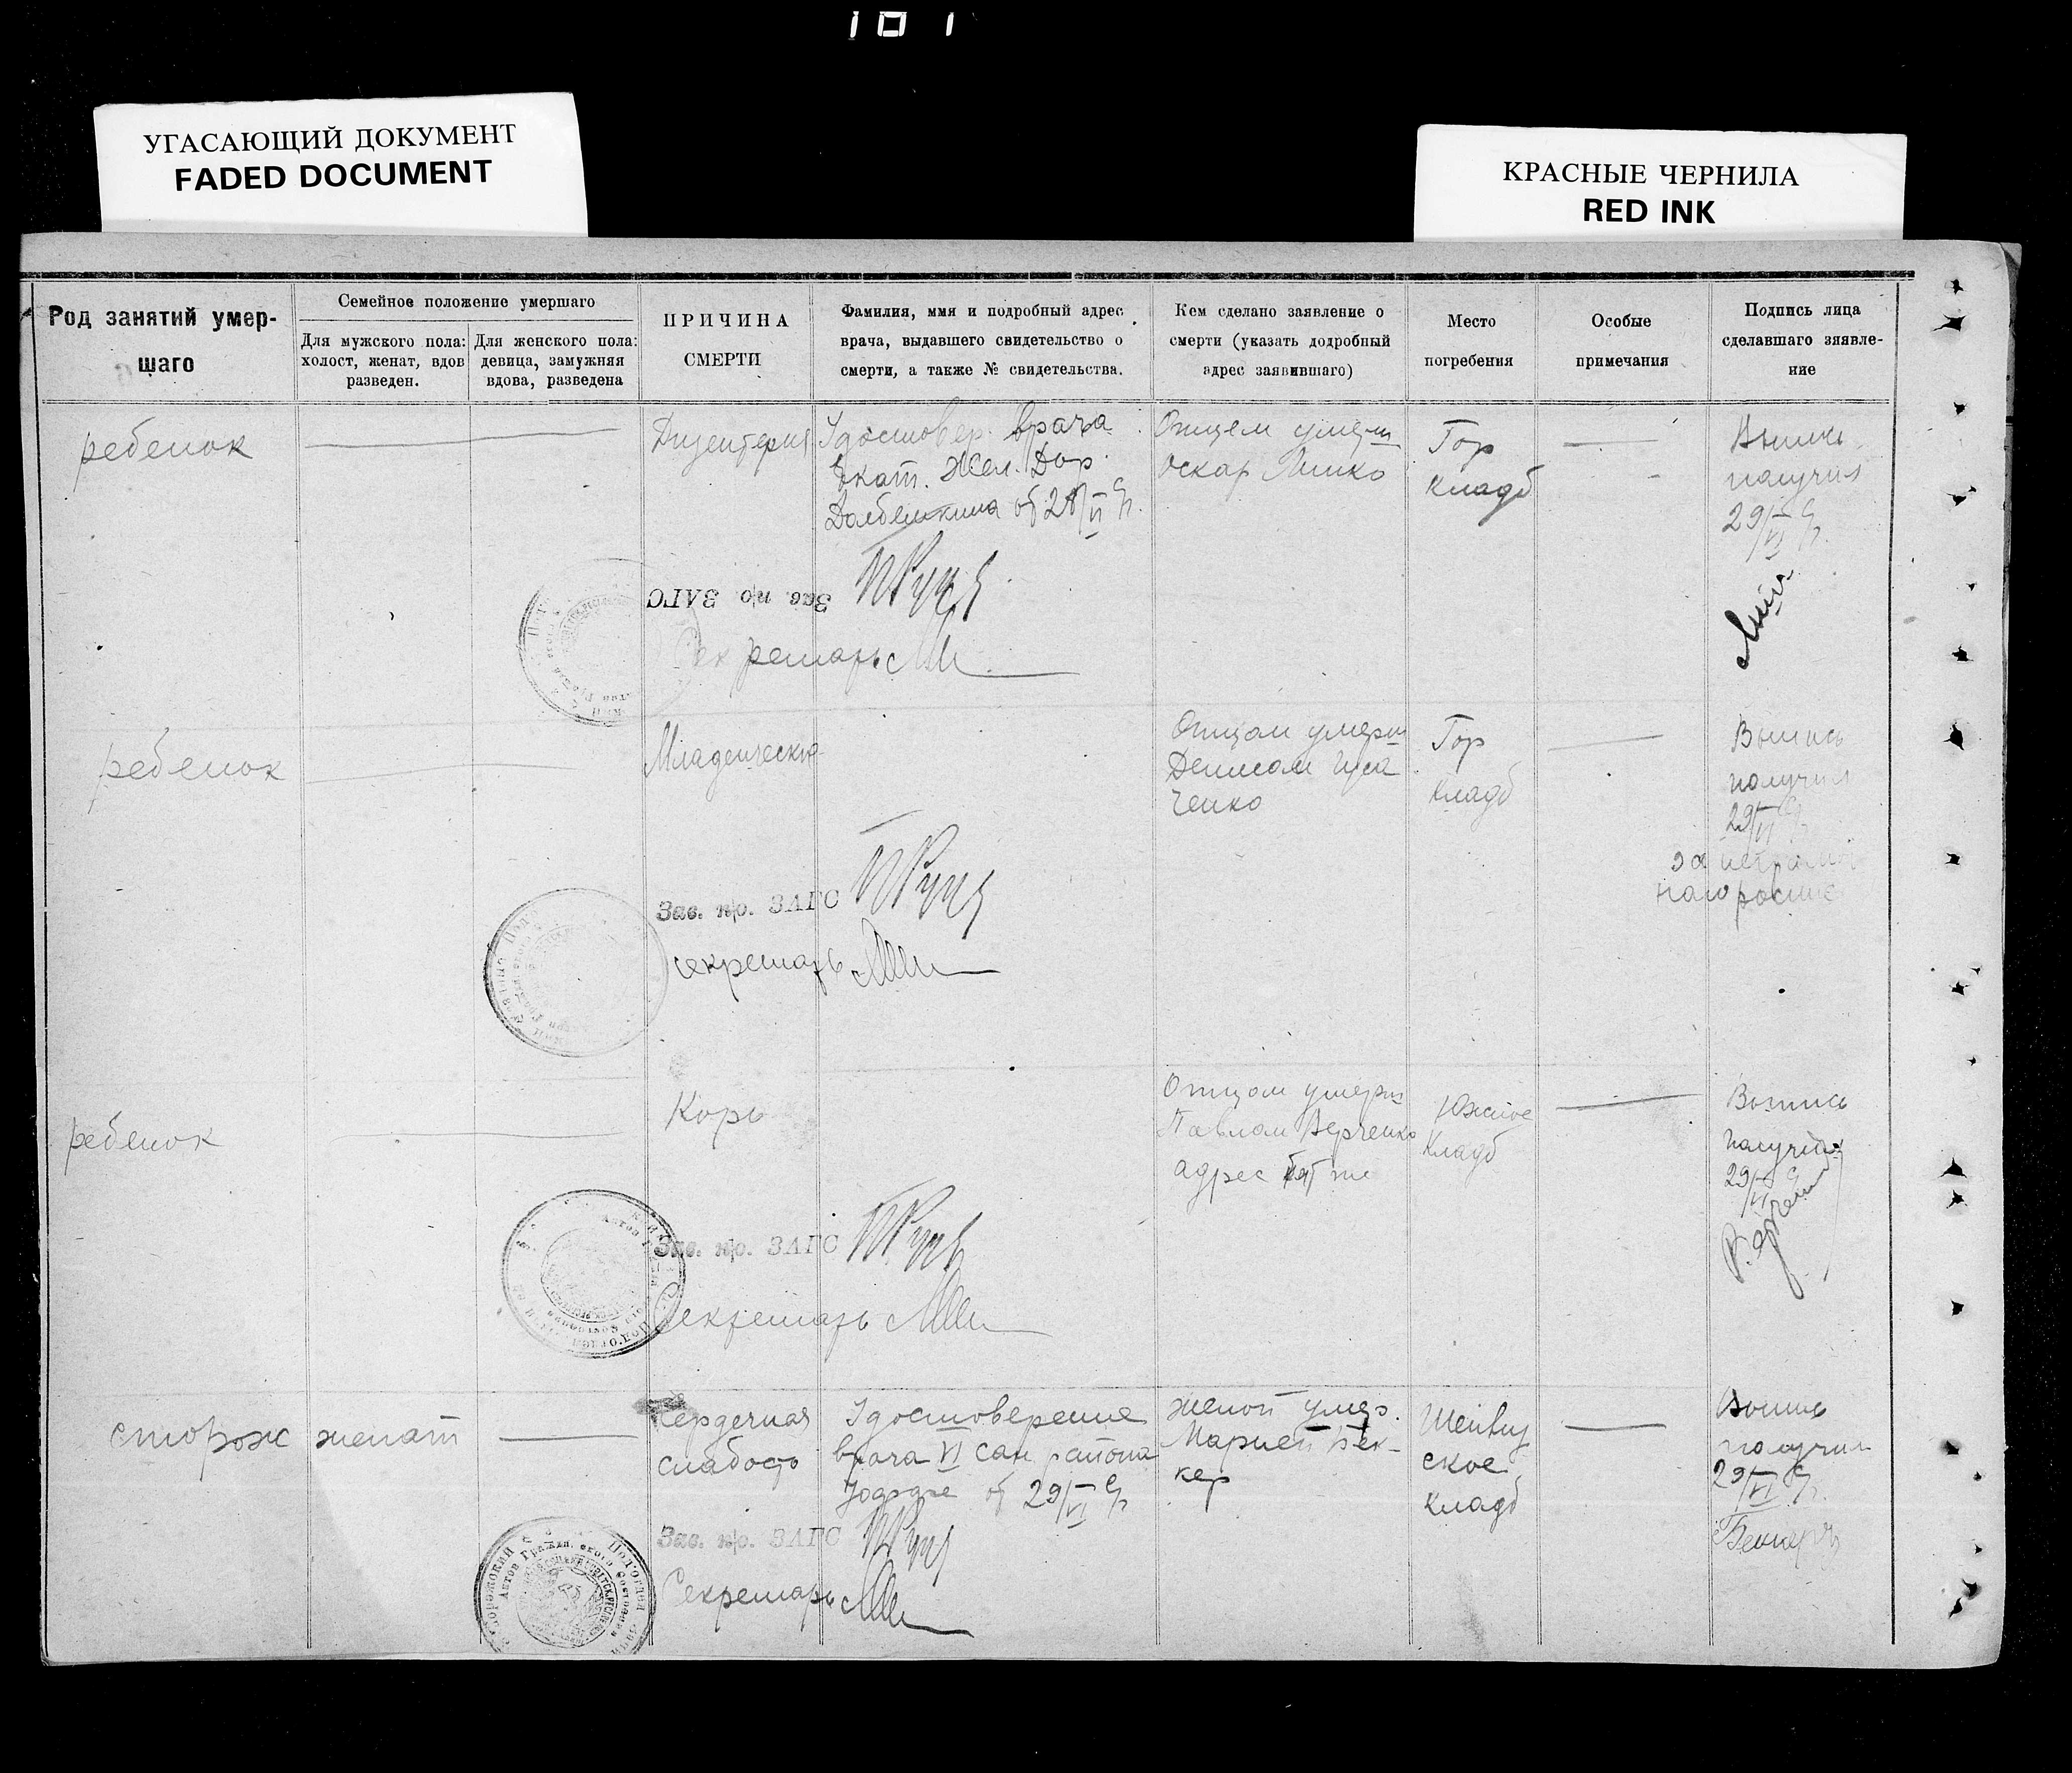 101
УГАСАЮЩИЙ ДОКУМЕНТ
FADED DOCUMENT
КРАСНЫЕ ЧЕРНИЛА
RED INK
Род занятий умер-
шаго
Семейное положение умершаго
Для мужского пола:
холост, женат, вдов
разведен.
Для женского пола:
девица, замужняя
вдова, разведена
ПРИЧИНА
СМЕРТИ
Фамилия, имя и подробный адрес
врача, выдавшего свидетельство о
смерти, а также № свидетельства.
Кем сделано заявление о
смерти (указать додробный
адрес заявившаго)
Место
погребения
Особые
примечания
Подпись лица
сделавшаго зяявле-
ние
ребенок
Дизентерия
Удостовер. врача
Екат. Жел. Дор.
от 28/VI
Отцем умерш
Оскар
Гор
кладб
Выпись
получил
29/VI
Зав. п/о. ЗАГС
Секретарь
ребенок
Младенческая
Отцом умерш
Денисом Гуса
ченко
Гор
кладб
Выпись
получил
29/VI
за неграмот
наго роспис
Зав. п/о. ЗАГС
Секретарь
ребенок
Корь
Отцом умерш
Павлом
адрес тот же
Южное
Кладб
Выпись
получил
29/VI
Зав. п/о. ЗАГС
Секретарь
сторож
женат
Сердечная
слабость
Удостоверение
врача VI сан района
от 29/VI
женой умер.
Марией Бек-
кер
ское
кладб
Выпись
получил
29/VI
Зав. п/о. ЗАГС
Секретарь